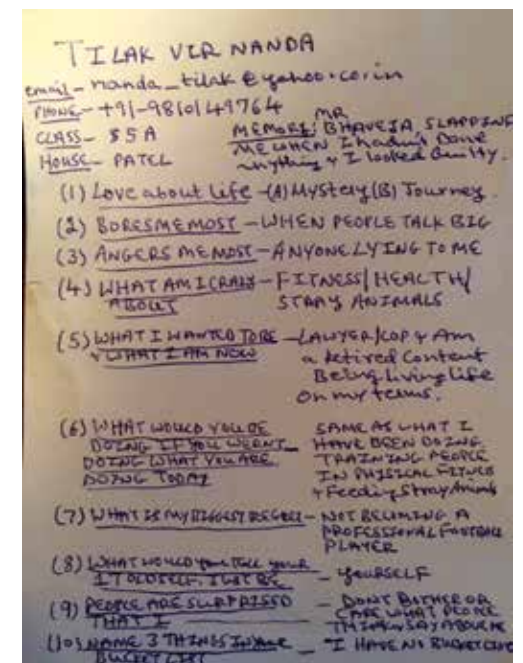 TILAK VIR NANDA
email - nanda_tilak@yahoo.co.in
PHONE - +91-9810149764
CLASS - S5A MEMORY: MR BHAVEJA SLAPPING
HOUSE - PATEL ME WHEN I hadn't Done anything & I looked Guilty.
(1) Love about life - (A) Mystery (B) Journey.
(2) BORES ME MOST - WHEN PEOPLE TALK BIG
(3) ANGERS ME MOST - ANYONE LYING TO ME
(4) WHAT AM I CRAZY - FITNESS/HEALTH/
ABOUT STRAY ANIMALS
(5) WHAT I WANTED TO BE - LAWYER/COP & Am
& WHAT I AM NOW a retired Content
Being living life
on my terms.
(6) WHAT WOULD YOU BE SAME AS WHAT I
DOING IF YOU WERNT - HAVE BEEN DOING
DOING WHAT YOU ARE TRAINING PEOPLE
DOING TODAY IN PHISICAL FITNESS
& Feeding Stray Animals
(7) WHAT IS MY BIGGEST REGRET - NOT BECOMING A
PROFESSIONAL FOOTBALL
PLAYER
(8) WHAT WOULD you TELL your
17 OLD SELF. JUST BE - yourSELF
(9) PEOPLE ARE SURPRISED - DONT BOTHER OR
THAT I CARE WHAT PEOPLE
THINK or SAY ABOUT ME
(10) NAME 3 THINGS IN your - I HAVE NO BUCKET LIST
BUCKET LIST